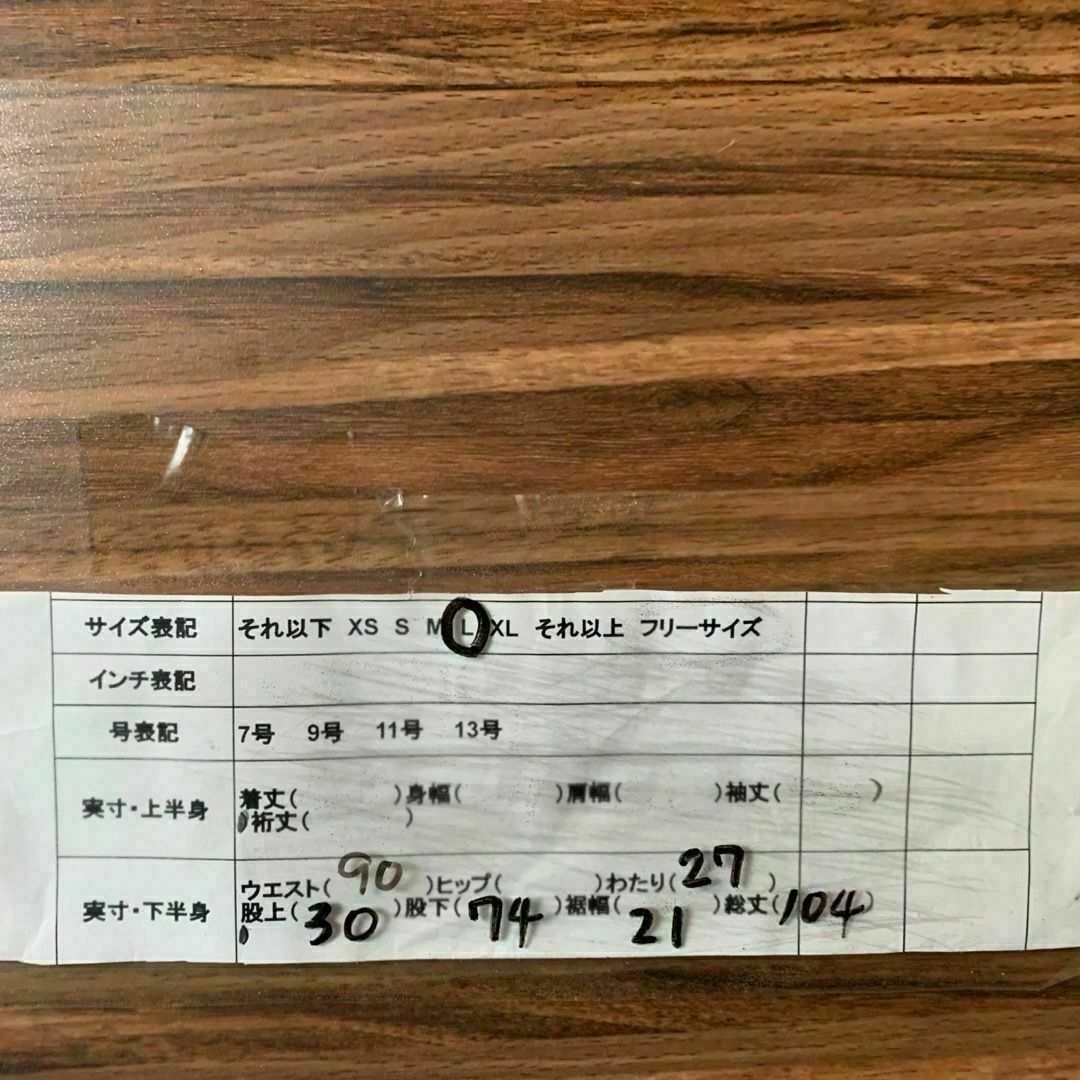 サイズ表記 それ以下 XS S M L XL それ以上 フリーサイズ
インチ表記
号表記 7号 9号 11号 13号
実寸・上半身 着丈( )身幅( )肩幅( )袖丈( )
)裄丈( )
実寸・下半身 ウエスト( 90 )ヒップ( )わたり( 27 )
股上( 30 )股下( 74 )裾幅( 21 )総丈( 104 )